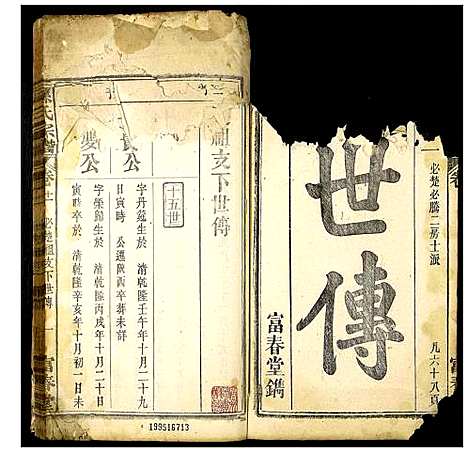 必楚必騰二房士派
世傳
富春堂鐫
凡六十八頁
祖支下世傳
十五世
長公
字丹蔻生於 清乾隆壬午年十月二十九
日寅時 公遷陝西卒葬未詳
變公
字榮歸生於 清乾隆丙戌年十月二十日
寅時卒於 清乾隆辛亥年十月初一日未
氏宗譜
卷廿
必楚祖支下世傳
一
富春堂
199516713
富春